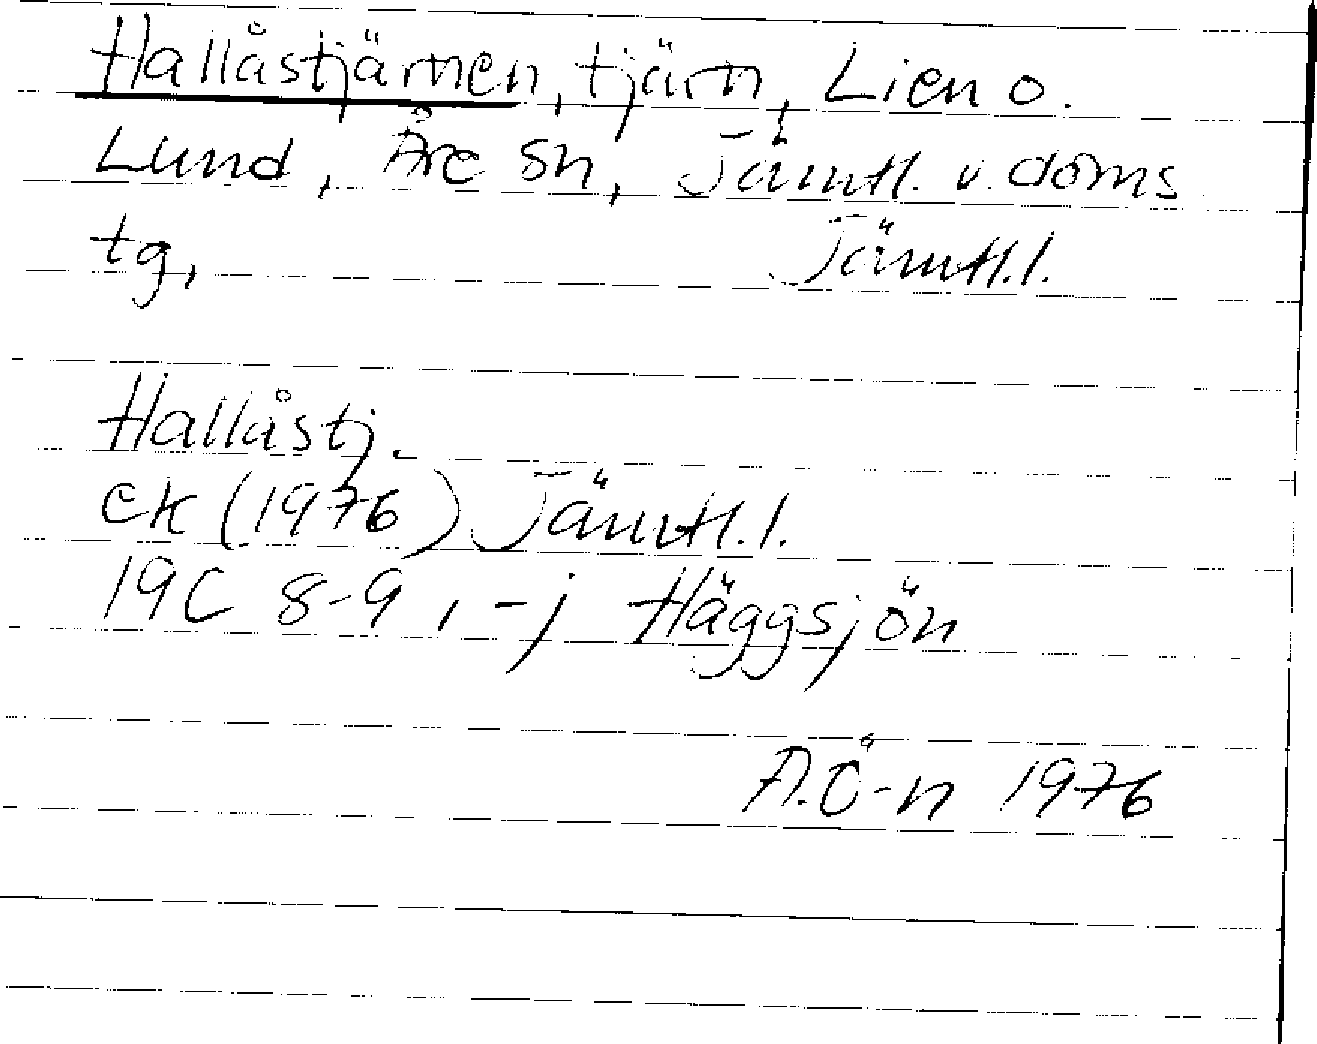 Hallåstjärnen, tjärn, Lien o.
Lund, Åre sn, Jämtl. v. doms
tg, Jämtl.l.
Hallåstj.
ek (1976) Jämtl.l.
19C 8-9, -j Häggsjön
A.Ö-n 1976